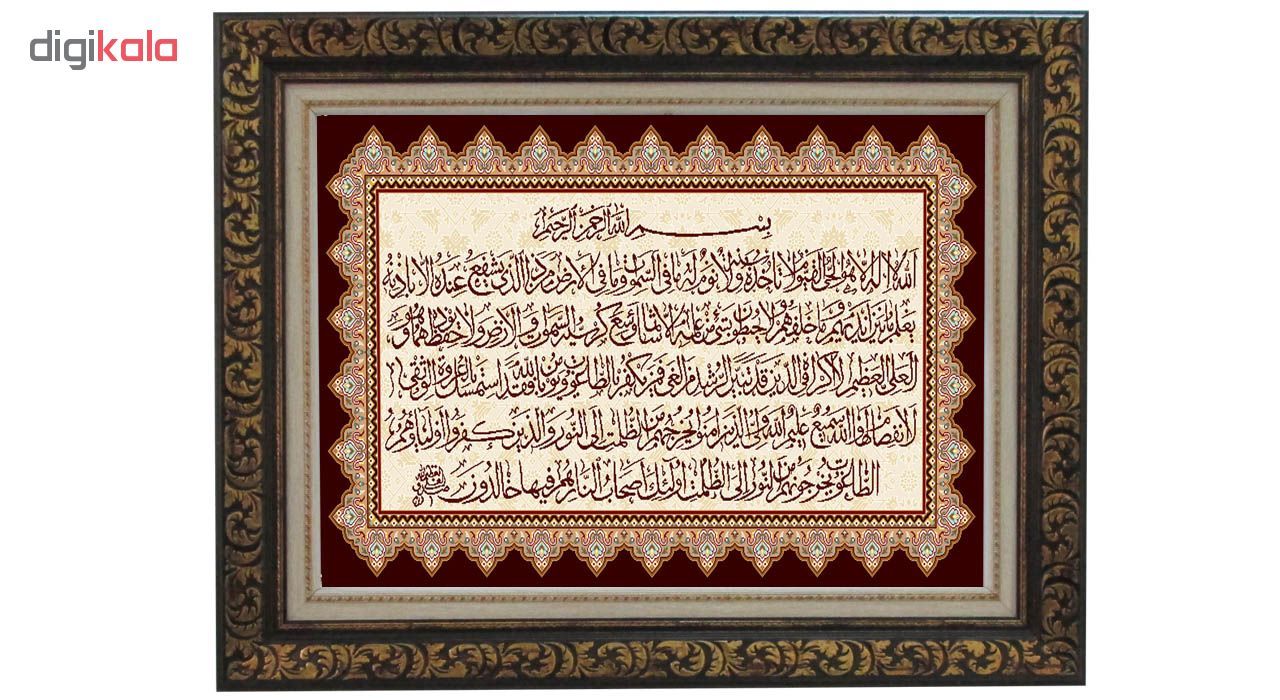 digikala
بسم الله الرحمن الرحیم
الله لا اله الا هو الحی القیوم لا تاخذه سنة ولا نوم له ما فی السموات وما فی الارض من ذا الذی یشفع عنده الا باذنه
یعلم ما بین ایدیهم وما خلفهم ولا یحیطون بشئ من علمه الا بما شاء وسع کرسیه السموات والارض ولا یؤده حفظهما وهو
العلی العظیم لا اکراه فی الدین قد تبین الرشد من الغی فمن یکفر بالطاغوت ویؤمن بالله فقد استمسک بالعروة الوثقی
لا انفصام لها والله سمیع علیم الله ولی الذین امنوا یخرجهم من الظلمات الی النور والذین کفروا اولیاؤهم
الطاغوت یخرجونهم من النور الی الظلمات اولئک اصحاب النار هم فیها خالدون